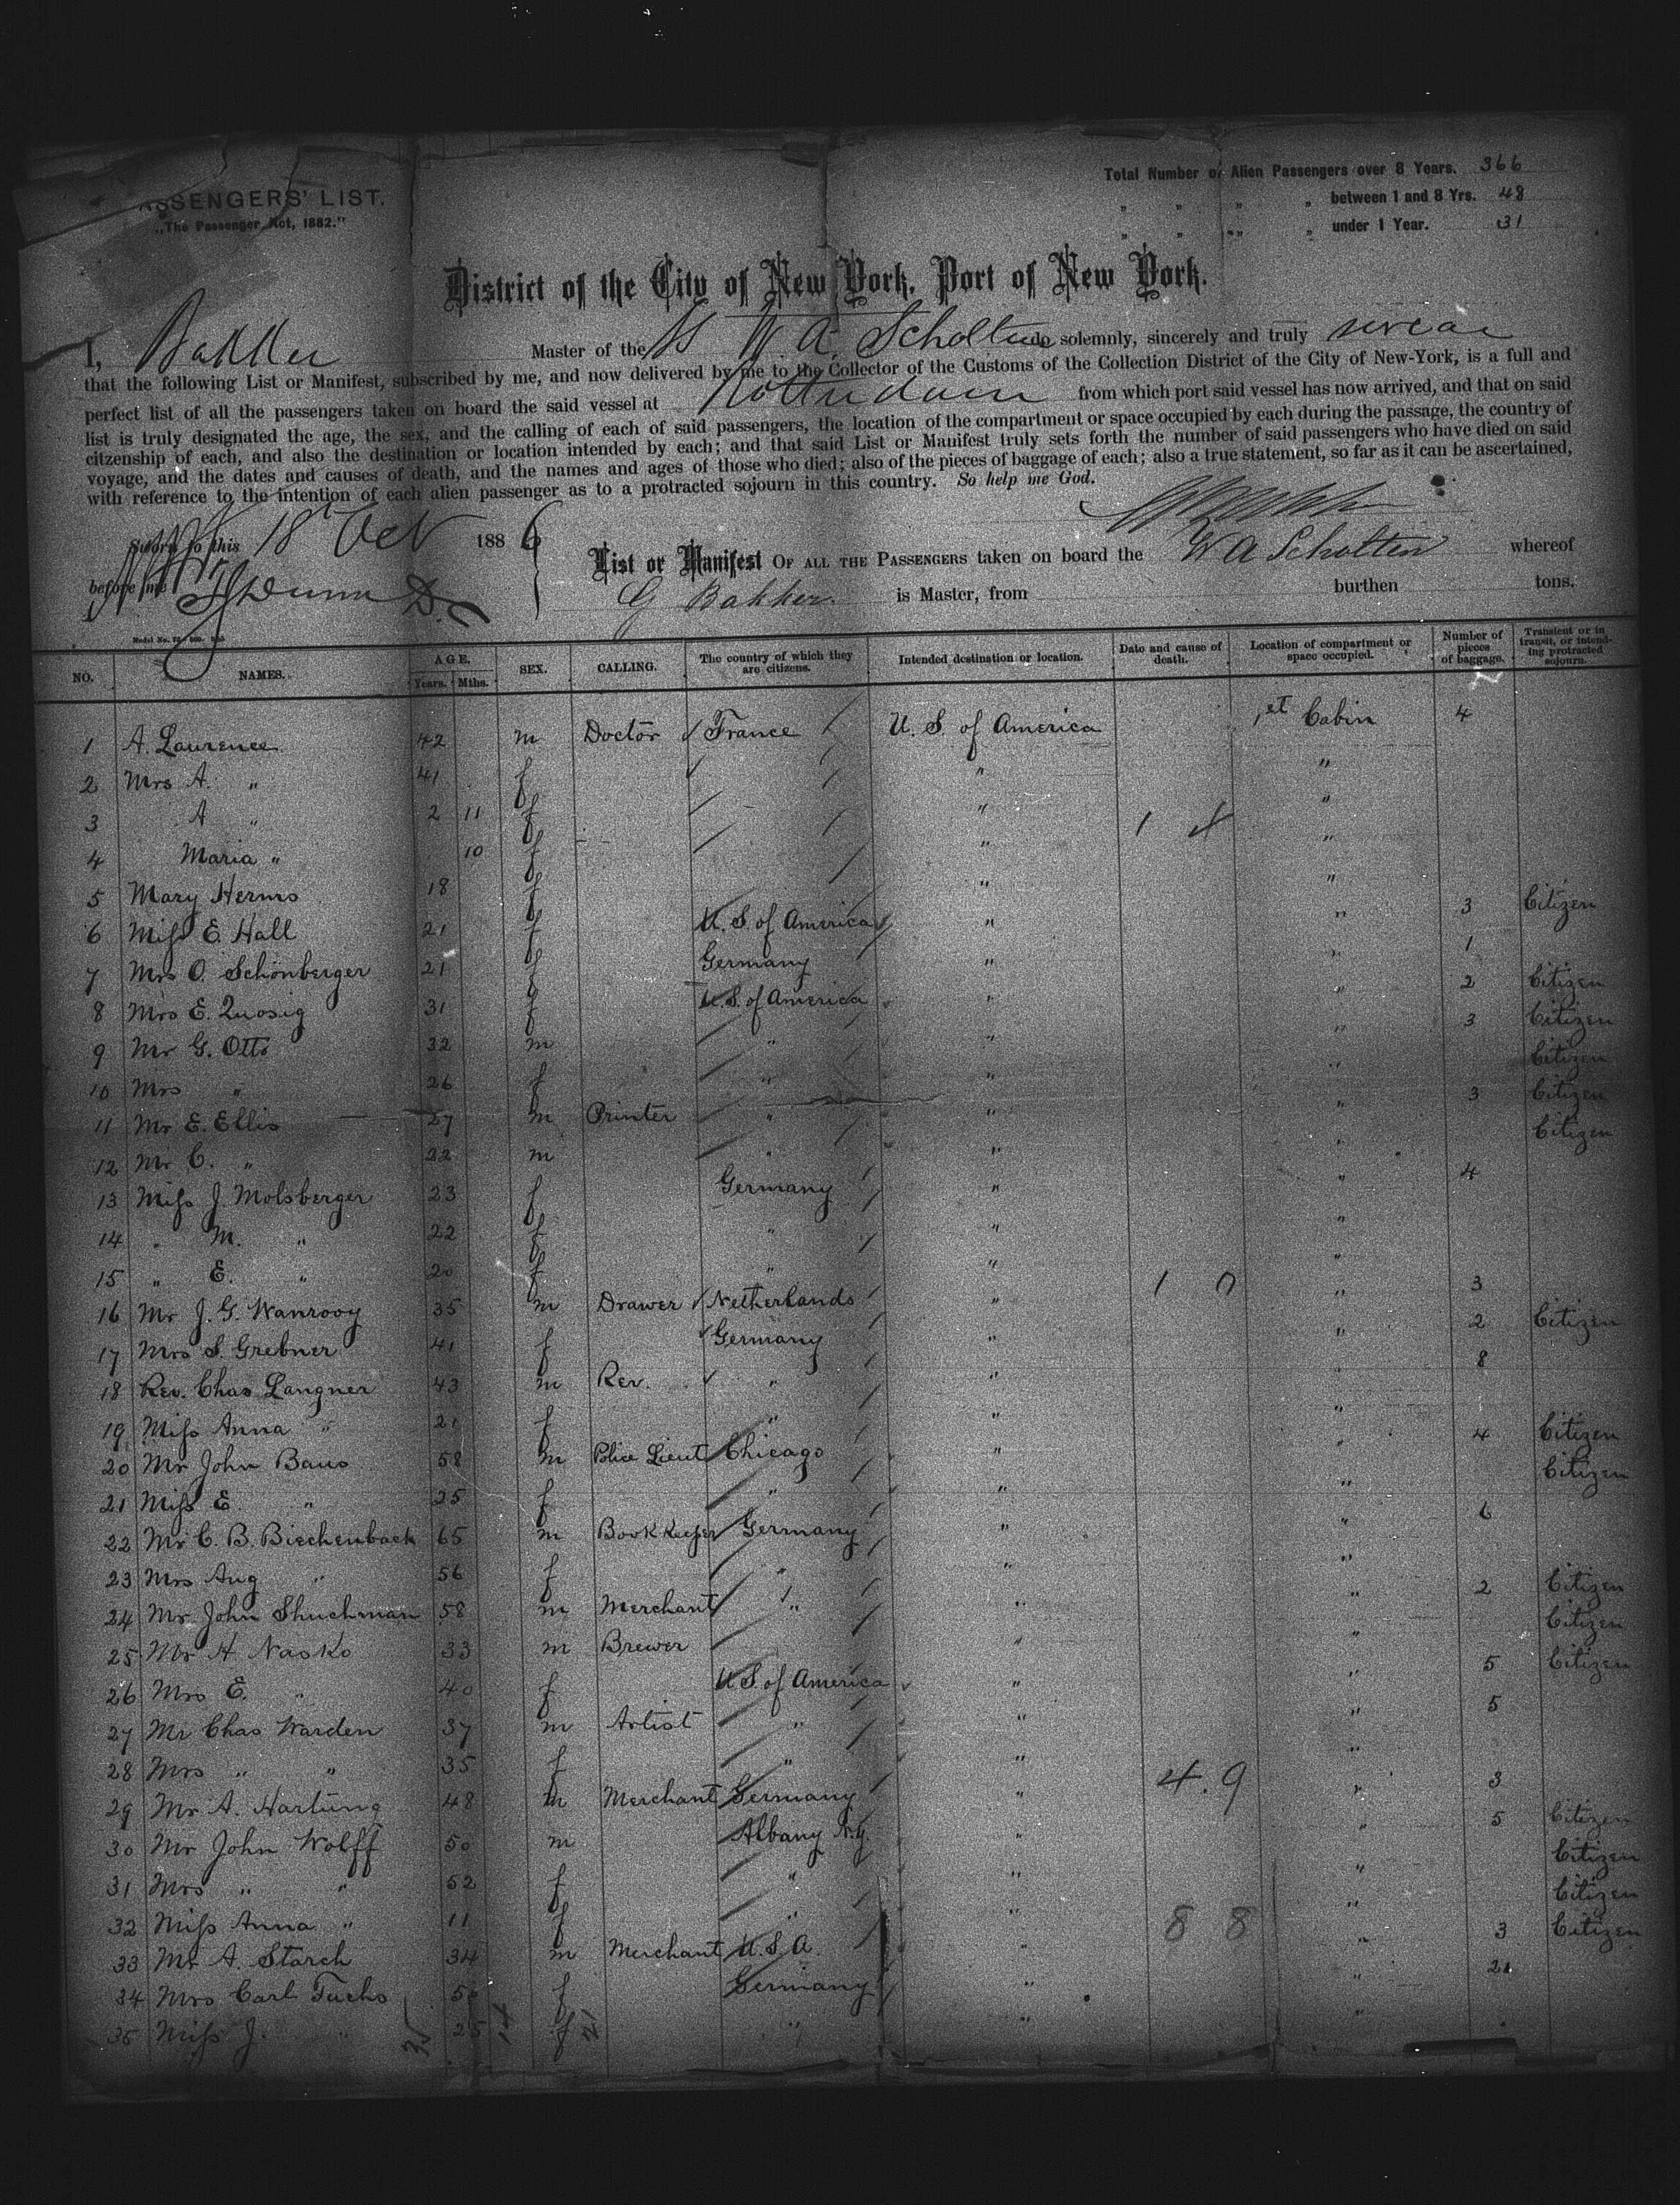 PASSENGERS' LIST.
„The Passenger Act, 1882."
Total Number of Alien Passengers over 8 Years. 366
„ „ „ „ between 1 and 8 Yrs. 48
„ „ „ „ under 1 Year. 31
District of the City of New York, Port of New York.
I, Bakker Master of the SS W. A. Scholten do solemnly, sincerely and truly swear
that the following List or Manifest, subscribed by me, and now delivered by me to the Collector of the Customs of the Collection District of the City of New-York, is a full and
perfect list of all the passengers taken on board the said vessel at Rotterdam from which port said vessel has now arrived, and that on said
list is truly designated the age, the sex, and the calling of each of said passengers, the location of the compartment or space occupied by each during the passage, the country of
citzenship of each, and also the destination or location intended by each; and that said List or Manifest truly sets forth the number of said passengers who have died on said
voyage, and the dates and causes of death, and the names and ages of those who died; also of the pieces of baggage of each; also a true statement, so far as it can be ascertained,
with reference to the intention of each alien passenger as to a protracted sojourn in this country. So help me God.
Sworn to this 18 Oct 1886
before me
List or Manifest OF ALL THE PASSENGERS taken on board the W A Scholten whereof
G Bakker is Master, from burthen tons.
NO. NAMES. AGE. Years. Mths. SEX. CALLING. The country of which they are citizens. Intended destination or location. Date and cause of death. Location of compartment or space occupied. Number of pieces of baggage. Transient or in transit, or intending protracted sojourn.
1 A. Laurence 42 m Doctor France U. S. of America 1st Cabin 4
2 Mrs A. " 41 f " "
3 A " 2 11 f " "
4 Maria " 10 f " "
5 Mary Herms 18 f " "
6 Miss E. Hall 21 f U. S. of America " " 3 Citizen
7 Mrs O. Schönberger 21 f Germany " " 1
8 Mrs E. Quosig 31 f U. S. of America " " 2 Citizen
9 Mr G. Otto 32 m " " " 3 Citizen
10 Mrs " 26 f " " " Citizen
11 Mr E. Ellis 27 m Printer " " " 3 Citizen
12 Mr C. " 22 m " " " Citizen
13 Miss J. Molsberger 23 f Germany " " 4
14 " M. " 22 f " " "
15 " E. " 20 f " " "
16 Mr J. G. Wanrooy 35 m Drawer Netherlands " " 3
17 Mrs S. Grebner 41 f Germany " " 2 Citizen
18 Rev. Chas Langner 43 m Rev. " " " 8
19 Miss Anna " 21 f " " "
20 Mr John Baus 58 m Police Lieut Chicago " " 4 Citizen
21 Miss E. " 25 f " " " Citizen
22 Mr C. B. Biechenbach 65 m Bookkeeper Germany " " 6
23 Mrs Aug " 56 f " " "
24 Mr. John Shuchman 58 m Merchant " " " 2 Citizen
25 Mr H Nasko 33 m Brewer " " Citizen
26 Mrs E. " 40 f U S. of America " " 5 Citizen
27 Mr Chas Warden 37 m Artist " " " 5
28 Mrs " " 35 f " " "
29 Mr A. Hartung 48 m Merchant Germany " " 3
30 Mr John Wolff 50 m Albany N.Y. " " 5 Citizen
31 Mrs " " 52 f " " " Citizen
32 Miss Anna " 11 f " " " Citizen
33 Mr A. Starch 34 m Merchant U. S. A. " " 3 Citizen
34 Mrs Carl Fuchs f Germany " " 2
35 Miss J. " 25 f " " "